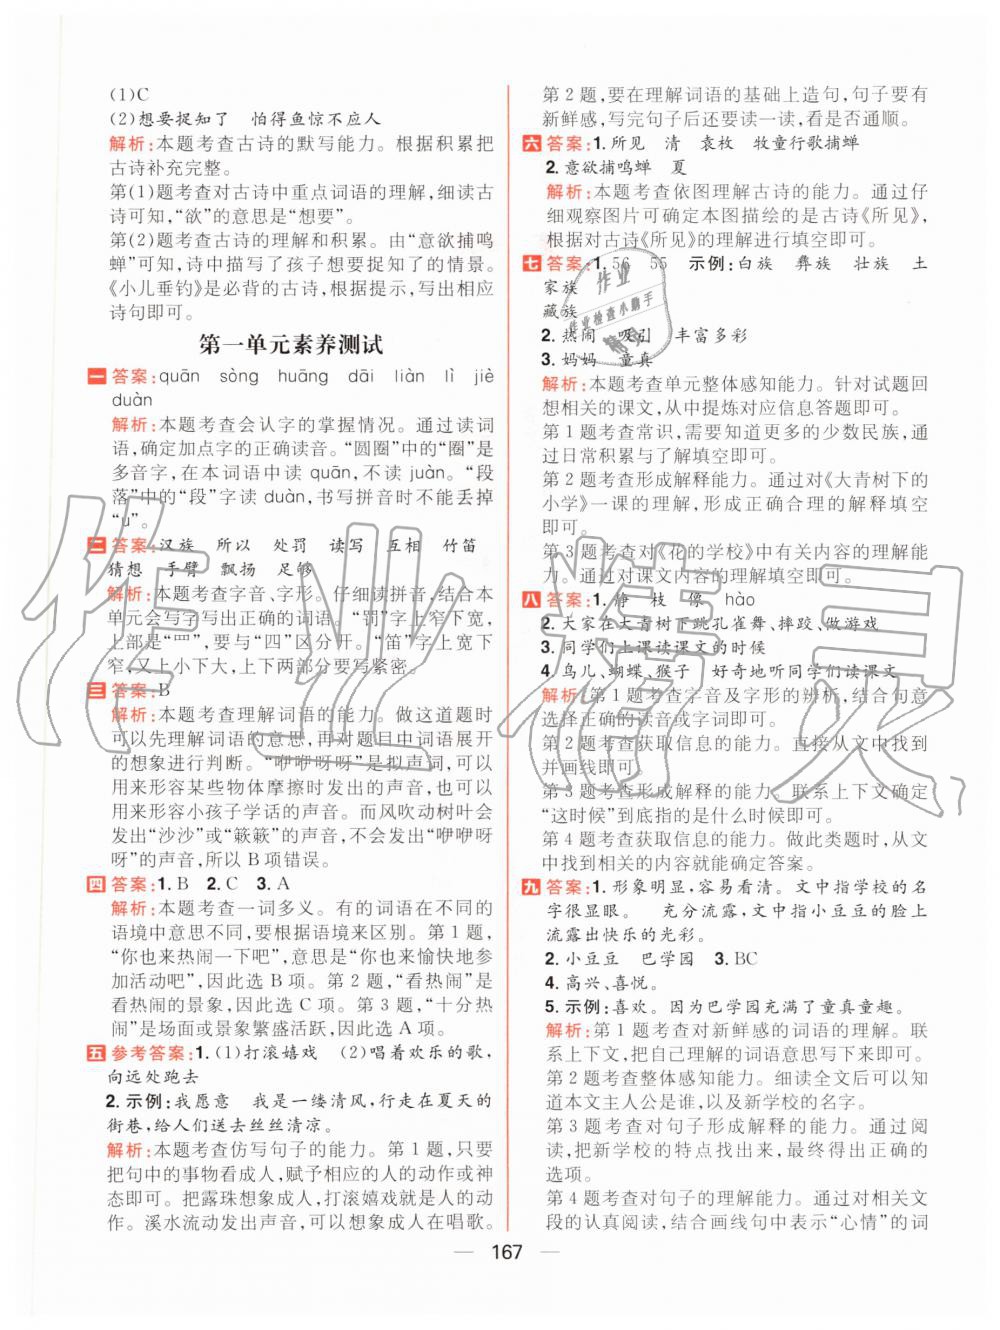 (1)C
(2)想要捉知了　怕得鱼惊不应人
解析:本题考查古诗的默写能力。根据积累把
古诗补充完整。
第(1)题考查对古诗中重点词语的理解,细读古
诗可知,“欲”的意思是“想要”。
第(2)题考查古诗的理解和积累。由“意欲捕鸣
蝉”可知,诗中描写了孩子想要捉知了的情景。
《小儿垂钓》是必背的古诗,根据提示,写出相应
诗句即可。
第一单元素养测试
一 答案:quān　sòng　huāng　dāi　liàn　lì　jiè
duàn
解析:本题考查会认字的掌握情况。通过读词
语,确定加点字的正确读音。“圆圈”中的“圈”是
多音字,在本词语中读 quān,不读 juàn。“段
落”中的“段”字读 duàn,书写拼音时不能丢掉
“u”。
二 答案:汉族　所以　处罚　读写　互相　竹笛
猜想　手臂　飘扬　足够
解析:本题考查字音、字形。仔细读拼音,结合本
单元会写字写出正确的词语。“罚”字上窄下宽,
上部是“罒”,要与“四”区分开。“笛”字上宽下
窄,又上小下大,上下两部分要写紧密。
三 答案:B
解析:本题考查理解词语的能力。做这道题时
可以先理解词语的意思,再对题目中词语展开
的想象进行判断。“咿咿呀呀”是拟声词,可以
用来形容某些物体摩擦时发出的声音,也可以
用来形容小孩子学话的声音。而风吹动树叶会
发出“沙沙”或“簌簌”的声音,不会发出“咿咿呀
呀”的声音,所以 B项错误。
四 答案:1. B　2. C　3. A
解析:本题考查一词多义。有的词语在不同的
语境中意思不同,要根据语境来区别。第 1 题,
“你也来热闹一下吧”,意思是“你也来愉快地参
加活动吧”,因此选 B项。第 2 题,“看热闹”是
看热闹的景象,因此选 C项。第 3 题,“十分热
闹”是场面或景象繁盛活跃,因此选 A项。
五 参考答案:1. (1)打滚嬉戏　(2)唱着欢乐的歌,
向远处跑去
2. 示例:我愿意　我是一缕清风,行走在夏天的
街巷,给人们送去丝丝清凉。
解析:本题考查仿写句子的能力。第 1 题,只要
把句中的事物看成人,赋予相应的人的动作或神
态即可。把露珠想象成人,打滚嬉戏就是人的动
作。溪水流动发出声音,可以想象成人在唱歌。
第 2 题,要在理解词语的基础上造句,句子要有
新鲜感,写完句子后还要读一读,看是否通顺。
六 答案:1. 所见　清　袁枚　牧童行歌捕蝉
2. 意欲捕鸣蝉　夏
解析:本题考查依图理解古诗的能力。通过仔
细观察图片可确定本图描绘的是古诗《所见》,
根据对古诗《所见》的理解进行填空即可。
七 答案:1. 56　55　示例:白族　彝族　壮族　土
家族
藏族
2. 热闹　吸引　丰富多彩
3. 妈妈　童真
解析:本题考查单元整体感知能力。针对试题回
想相关的课文,从中提炼对应信息答题即可。
第 1 题考查常识,需要知道更多的少数民族,通
过日常积累与了解填空即可。
第 2 题考查形成解释能力。通过对《大青树下的
小学》一课的理解,形成正确合理的解释填空
即可。
第 3 题考查对《花的学校》中有关内容的理解能
力。通过对课文内容的理解填空即可。
八 答案:1. 静　枝　像　hào
2. 大家在大青树下跳孔雀舞、摔跤、做游戏
3. 同学们上课读课文的时候
4. 鸟儿、蝴蝶、猴子　好奇地听同学们读课文
解析:第 1 题考查字音及字形的辨析,结合句意
选择正确的读音或字词即可。
第 2 题考查获取信息的能力。直接从文中找到
并画线即可。
第 3 题考查形成解释的能力。联系上下文确定
“这时候”到底指的是什么时候即可。
第 4 题考查获取信息的能力。做此类题时,从文
中找到相关的内容就能确定答案。
九 答案:1. 形象明显,容易看清。文中指学校的名
字很显眼。　充分流露,文中指小豆豆的脸上
流露出快乐的光彩。
2. 小豆豆　巴学园　3. BC
4. 高兴、喜悦。
5. 示例:喜欢。因为巴学园充满了童真童趣。
解析:第 1 题考查对新鲜感的词语的理解。联
系上下文,把自己理解的词语意思写下来即可。
第 2 题考查整体感知能力。细读全文后可以
知道本文主人公是谁,以及新学校的名字。
第 3 题考查对句子形成解释的能力。通过阅
读,把新学校的特点找出来,最后得出正确的
选项。
第 4 题考查对句子的理解能力。通过对相关文
段的认真阅读,结合画线句中表示“心情”的词
167
作业精灵
作业
作业检查小助手
精灵